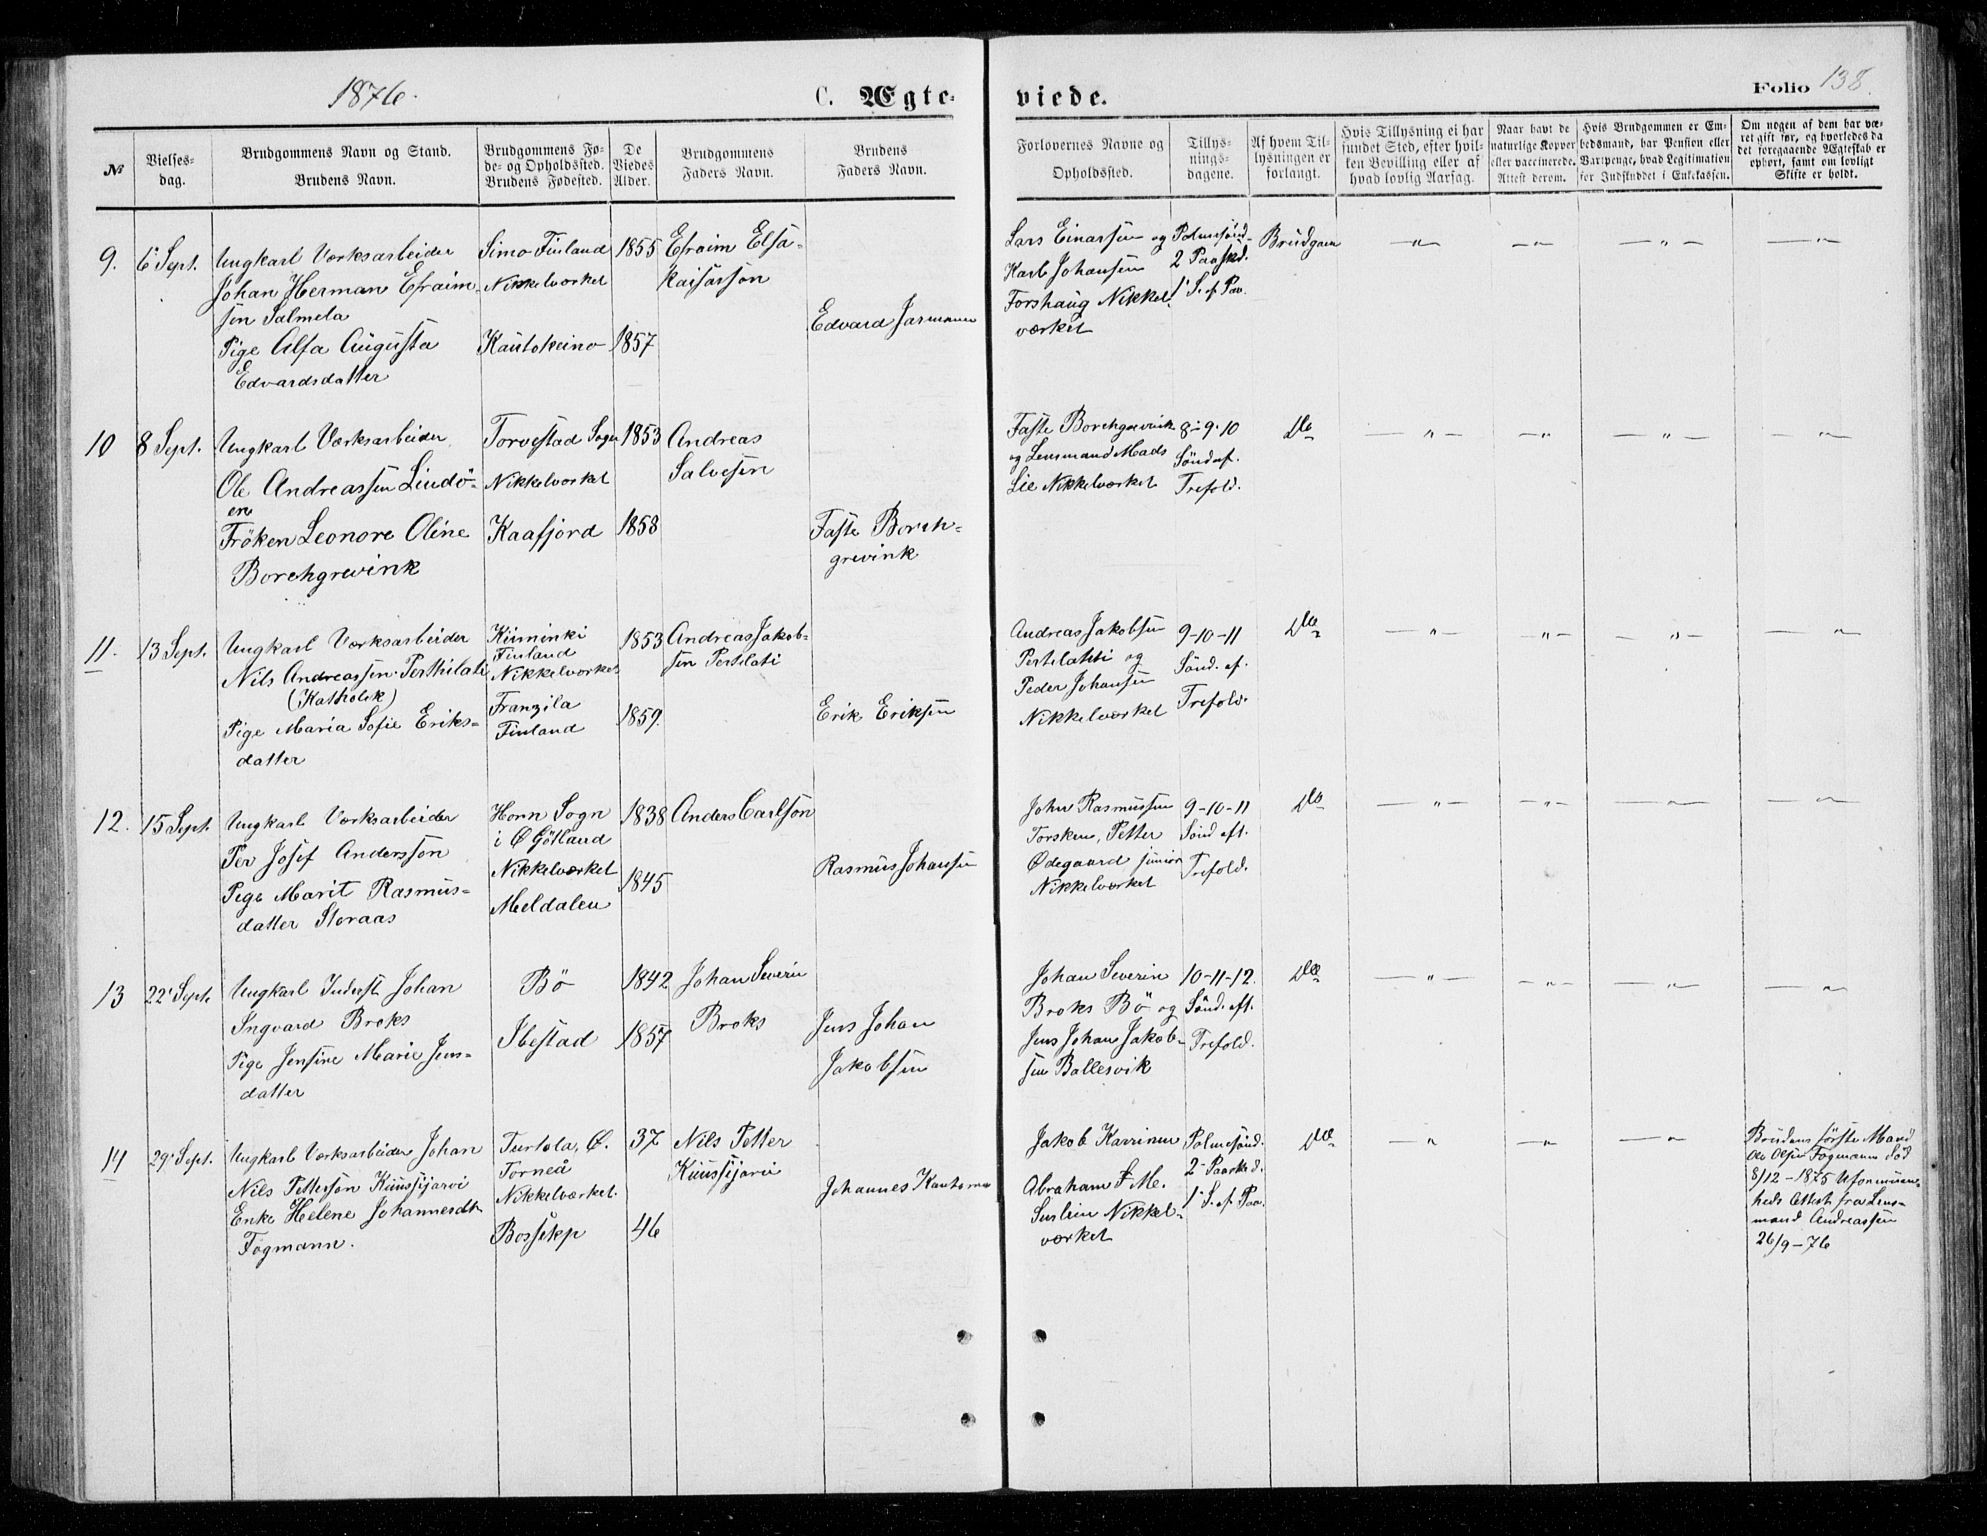 1876.
C. Ægte-
viede.
Folio 138.
№
Vielses-
dag.
Brudgommens Navn og Stand.
Brudens Navn.
Brudgommens Fø-
de- og Opholdssted.
Brudens Fødested.
De
Viedes
Alder.
Brudgommens
Faders Navn.
Brudens
Faders Navn.
Forlovernes Navne og
Opholdssted.
Tillys-
nings-
dagene.
Af hvem Til-
lysningen er
forlangt.
Hvis Tillysning ei har
fundet Sted, efter hvil-
ken Bevilling eller af
hvad lovlig Aarsag.
Naar havt de
naturlige Kopper
eller vaccinerede.
Attest derom.
Hvis Brudgommen er Em-
bedsmand, har Pension eller
Vartpenge, hvad Legitimation
for Indskuddet i Enkekassen.
Om nogen af dem har væ-
ret gift før, og hvorledes da
det foregaaende Ægteskab er
ophørt, samt om lovligt
Skifte er holdt.
9.
6 Sept.
Ungkarl Værksarbeider
Johan Herman Efraim-
sen Salmela
Pige Alfa Augusta
Edvardsdatter
Simo Finland
Nikkelværket
Kautokeino
1855
1857
Efraim Elsa-
Kaisasson
Edvard Jarmann
Lars Einarsen og
Karl Johansen
Forshaug Nikkel-
værket
Palmesønd.
2 Paaskd.
1 S. ef. Paa.
Brudgom
10
8 Sept.
Ungkarl Værksarbeider
Ole Andreassen Lindö-
en
Fröken Leonore Oline
Borchgrevink
Torvestad Sogn
Nikkelværket
Kaafjord
1853
1858
Andreas
Salvesen
Faste Borch-
grevink
Faste Borchgrevink
og Lensmand Mads
Lie Nikkelværket
8-9-10
Sönd ef.
Trefold.
Do
11.
13 Sept.
Ungkarl Værksarbeider
Nils Andreassen Perthilati
(Katholsk)
Pige Maria Sofie Eriks-
datter
Kiiminki
Finland
Nikkelværket
Franzila
Finland
1853
1859.
Andreas Jakob-
sen Pertilati
Erik Eriksen
Andreas Jakobsen
Pertilahti og
Peder Johansen
Nikkelværket
9-10-11
Sönd. ef.
Trefold.
Do
12.
15 Sept.
Ungkarl Værksarbeider
Per Josef Andersson
Pige Marit Rasmus-
datter Storaas
Horn Sogn
i Ø Götland
Nikkelværket
Meldalen
1838
1845
Anders Carlson
Rasmus Johansen
John Rasmussen
Torsken, Petter
Ødegaard junior
Nikkelværket
9-10-11
Sönd eft.
Trefold.
Do
13
22 Sept.
Ungkarl Inderst Johan
Ingvard Broks
Pige Jensine Marie Jens-
datter
Bö
Ibestad
1842
1857
Johan Severin
Broks
Jens Johan
Jakobsen
Johan Severin
Broks Bö og
Jens Johan Jakob-
sen Ballesvik
10-11-12.
Sönd. eft.
Trefold.
Do
14
29 Sept.
Ungkarl Værksarbeider Johan
Nils Pettersön Kuusijarvi
Enke Helene Johannesdtr
Fogmann.
Turtola, Ø.
Torneå
Nikkelværket.
Bossekp
37
46
Nils Petter
Kuusijarvi
Johannes
Jakob Karrinen
Abraham
Nikkel-
værket
Palmesönd.
2 Paaskd.
1 S. ef. Paa.
Do
Brudens förste Mand
Ole Olsen Fogmann död
8/12-1875
heds Attest fra Lens-
mand Andreassen
26/9-76